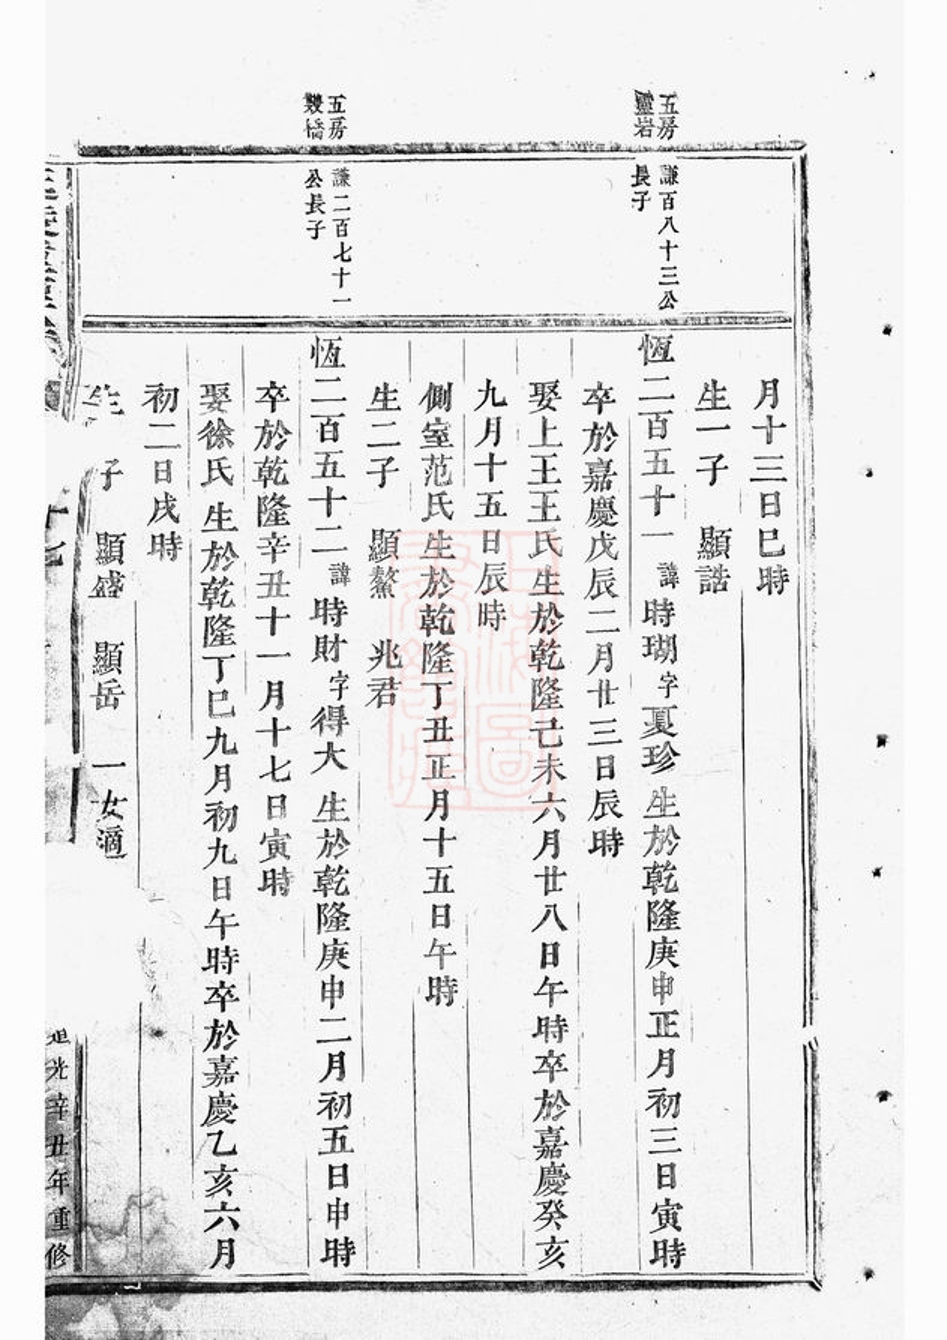 五房
靈岩
謙百八十三公
長子
五房
雙橋
謙二百七十一
公長子
月十三日巳時
生一子 顯誥
恆二百五十一 諱時瑚字夏珍 生於乾隆庚申正月初三日寅時
卒於嘉慶戊辰二月廿三日辰時
娶上王王氏生於乾隆己未六月廿八日午時卒於嘉慶癸亥
九月十五日辰時
側室范氏生於乾隆丁丑正月十五日午時
生二子 顯鰲 兆君
恆二百五十二 諱時財字得大 生於乾隆庚申二月初五日申時
卒於乾隆辛丑十一月十七日寅時
娶徐氏 生於乾隆丁巳九月初九日午時卒於嘉慶乙亥六月
初二日戌時
生 子 顯盛 顯岳 一女適
十七
道光辛丑年重修